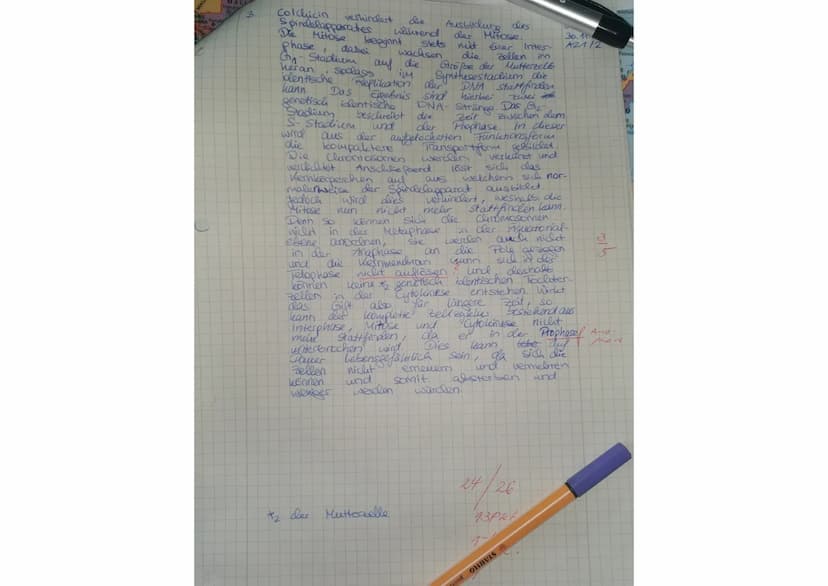 3. Colchicin verhindert die Ausbildung des
Spindelapparates während der Mitose.
Die Mitose beginnt stets mit einer Inter-
phase, dabei wachsen die Zellen im
G1-Stadium auf die Größe der Mutterzelle
heran, sodass im Synthesestadium die
identische Replikation der DNA stattfinden
kann. Das Ergebnis sind hierbei zwei
genetisch identische DNA-Stränge. Das G2-
Stadium beschreibt die Zeit zwischen dem
S-Stadium und der Prophase. In dieser
wird aus der aufgelockerten Funktionsform
die kompaktere Transportform gebildet.
Die Chromosomen werden verkürzt und
verdichtet. Anschließend löst sich das
Kernkörperchen auf aus welchem sich nor-
malerweise der Spindelapparat ausbildet.
Jedoch wird dies verhindert, weshalb die
Mitose nun nicht mehr stattfinden kann.
Denn so können sich die Chromosomen
nicht in der Metaphase in der Äquatorial-
ebene anordnen, sie werden auch nicht
in der Anaphase an die Pole gezogen
und die Kernmembran kann sich in der
Telophase nicht auflösen und deshalb
können keine *2 genetisch identischen Tochter-
zellen in der Cytokinese entstehen. Wirkt
das Gift also für längere Zeit, so
kann der komplette Zellzyklus bestehend aus
Interphase, Mitose und Cytokinese nicht
mehr stattfinden, da er in der Prophase
unterbrochen wird. Dies kann auf
Dauer lebensgefährlich sein, da sich die
Zellen nicht erneuern und vermehren
können und somit absterben und
weniger werden würden.
3/5
24/26
13 Pkt
*2 der Mutterzelle
STABILO